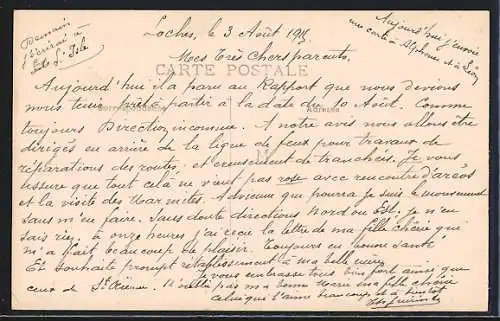 Demain
j'écrirai à
de L'Isle
Aujourd'hui j'envoie
une carte à Alphonse et à Léon
Loches, le 3 Août 1915
Mes Très Chers parents.
CARTE POSTALE
Aujourd'hui il a paru au Rapport que nous devions
nous tenir prêts à partir à la date du 10 Août. Comme
Correspondance
Adresse
toujours Direction inconnue. A notre avis nous allons être
dirigés en arrière de la ligne de feux pour travaux de
réparations des routes et creusement de tranchées. Je vous
assure que tout celà ne vaut pas avec rencontre d'aréos
et la visite des Marmites. Advienne que pourra je suis le mouvement
sans m'en faire. Sans doute directions Nord ou Est. Je n'en
sais rien, à onze heures j'ai reçu la lettre de ma fille chérie qui
m'a fait beaucoup de plaisir. Toujours en bonne santé
Et souhaite prompt rétablissement à ma belle mère
Je vous embrasse tous bien fort ainsi que
ceux de St N'oublie pas ma bonne ma fille chérie
Celui qui t'aime beaucoup et à bientôt